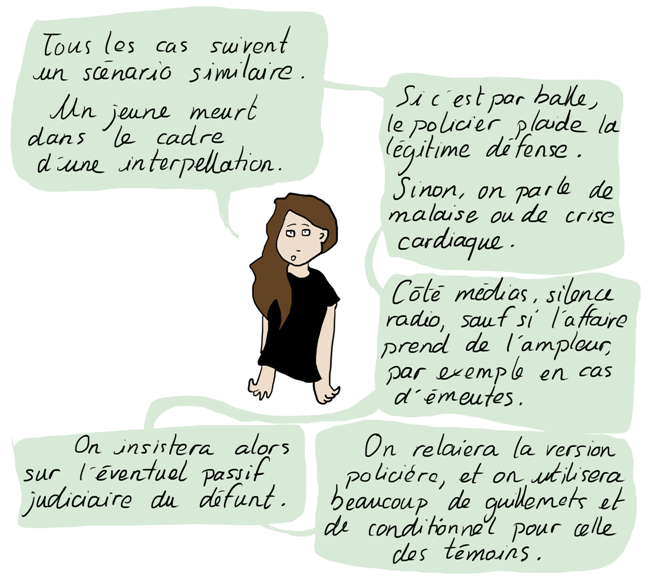 Tous les cas suivent
un scénario similaire.
Un jeune meurt
dans le cadre
d'une interpellation.
Si c'est par balle,
le policier plaide la
légitime défense.
Sinon, on parle de
malaise ou de crise
cardiaque.
Côté médias, silence
radio, sauf si l'affaire
prend de l'ampleur,
par exemple en cas
d'émeutes.
On insistera alors
sur l'éventuel passif
judiciaire du défunt.
On relaiera la version
policière, et on utilisera
beaucoup de guillemets et
de conditionnel pour celle
des témoins.